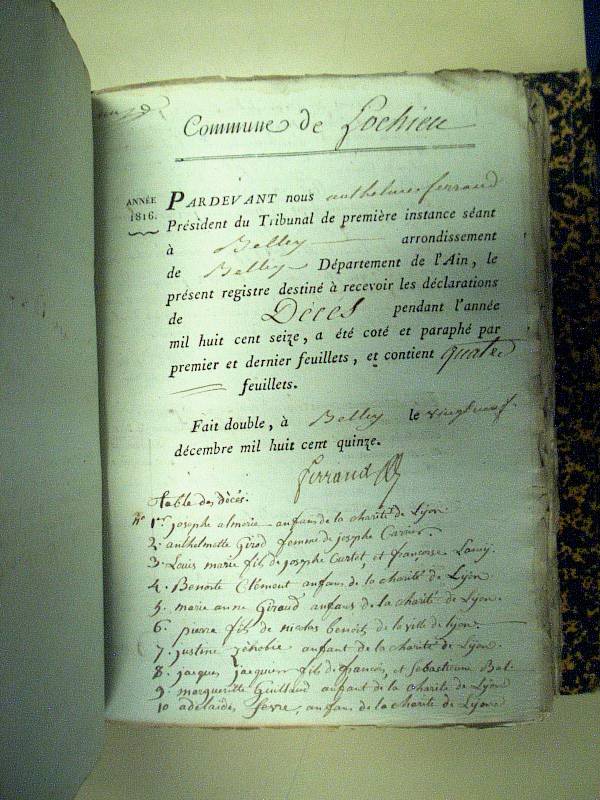 Commune de Lochieu
ANNÉE
1816.
PARDEVANT nous anthelme ferrand
Président du Tribunal de première instance séant
à Belley arrondissement
de Belley Département de l'Ain, le
présent registre destiné à recevoir les déclarations
de Décès pendant l'année
mil huit cent seize, a été coté et paraphé par
premier et dernier feuillets, et contient quatre
feuillets.
Fait double, à Belley le vingt neuf
décembre mil huit cent quinze.
ferrand
Table des décès.
No 1er josephe almerie anfans de la charité de Lyon
2. anthelmette Girod femme de josephe Carrier.
3. Louis marie fils de josephe Curtet et françoise
4. Benoite Clement anfans de la charité de Lyon
5. marie anne Giraud anfans de la charité de Lyon.
6. pierre fils de nicolas benoit de la ville de lyon.
7. justine anfant de la charité de Lyon
8. jaques jacquier fils de francois, et Sébastienne Bal-
9. margueritte Guillaud anfant de la charité de Lyon
10 adelaides fevre, anfans de la charité de Lyon